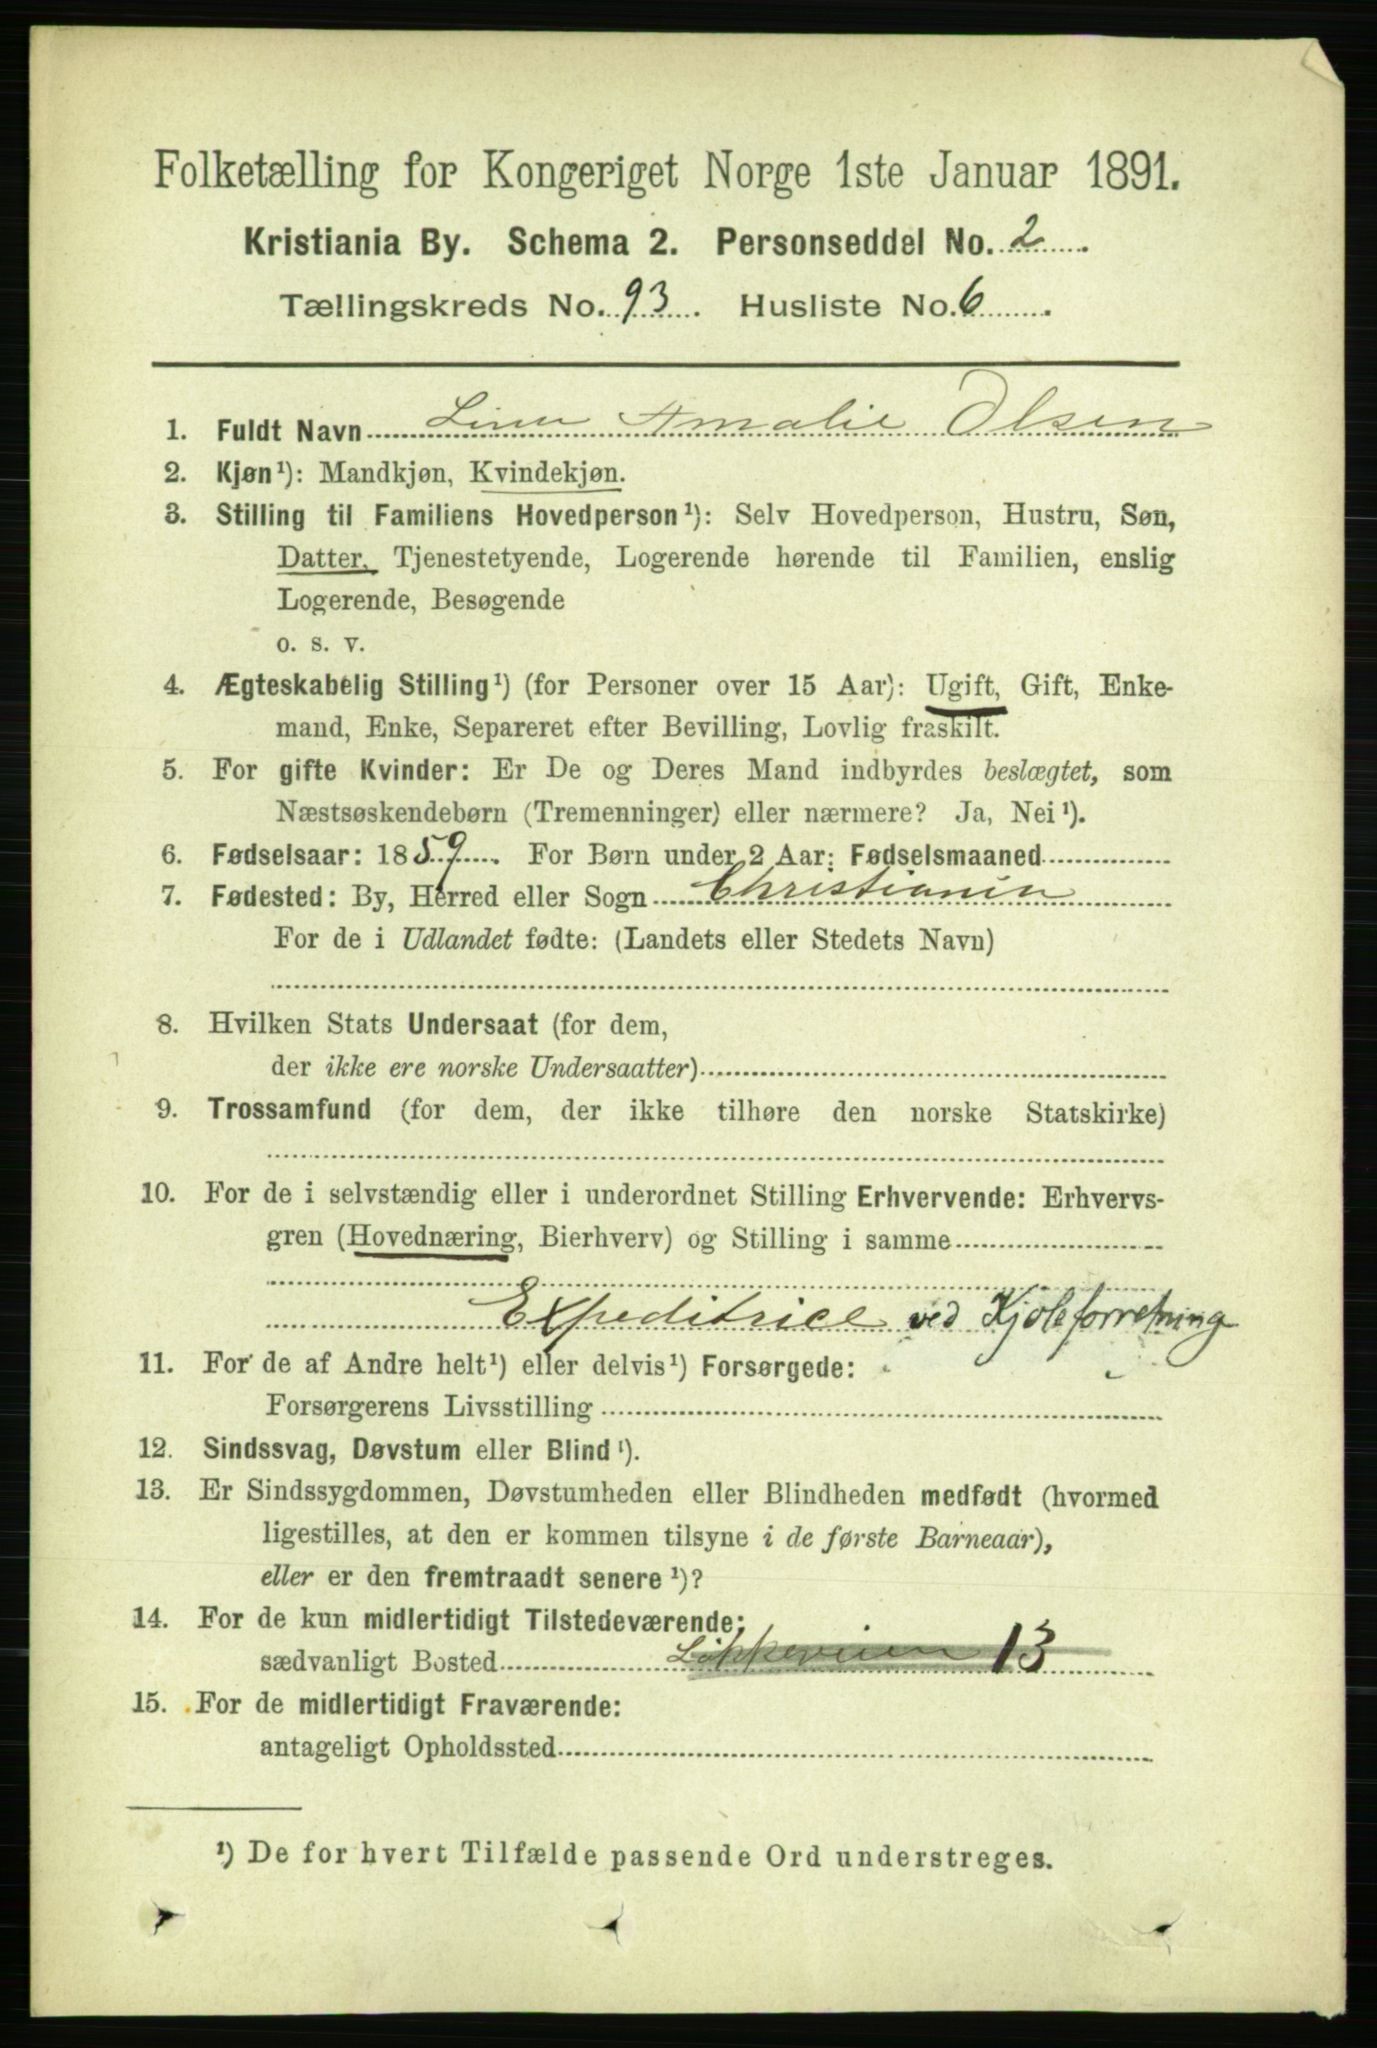 Folketælling for Kongeriget Norge 1ste Januar 1891.
Kristiania By. Schema 2. Personseddel No. 2
Tællingskreds No. 93. Husliste No. 6.
1. Fuldt Navn Lina Amalie Olsen
2. Kjøn¹): Mandkjøn, Kvindekjøn.
3. Stilling til Familiens Hovedperson¹): Selv Hovedperson, Hustru, Søn,
Datter, Tjenestetyende, Logerende hørende til Familien, enslig
Logerende, Besøgende
o. s. v.
4. Ægteskabelig Stilling¹) (for Personer over 15 Aar): Ugift, Gift, Enke-
mand, Enke, Separeret efter Bevilling, Lovlig fraskilt.
5. For gifte Kvinder: Er De og Deres Mand indbyrdes beslægtet, som
Næstsøskendebørn (Tremenninger) eller nærmere? Ja, Nei¹).
6. Fødselsaar: 1859. For Børn under 2 Aar: Fødselsmaaned
7. Fødested: By, Herred eller Sogn Christiania
For de i Udlandet fødte: (Landets eller Stedets Navn)
8. Hvilken Stats Undersaat (for dem,
der ikke ere norske Undersaatter)
9. Trossamfund (for dem, der ikke tilhøre den norske Statskirke)
10. For de i selvstændig eller i underordnet Stilling Erhvervende: Erhvervs-
gren (Hovednæring, Bierhverv) og Stilling i samme
Expeditrice ved Kjoleforretning
11. For de af Andre helt¹) eller delvis¹) Forsørgede:
Forsørgerens Livsstilling
12. Sindssvag, Døvstum eller Blind¹).
13. Er Sindssygdommen, Døvstumheden eller Blindheden medfødt (hvormed
ligestilles, at den er kommen tilsyne i de første Barneaar),
eller er den fremtraadt senere¹)?
14. For de kun midlertidigt Tilstedeværende:
sædvanligt Bosted Løkkeveien 13
15. For de midlertidigt Fraværende:
antageligt Opholdssted
¹) De for hvert Tilfælde passende Ord understreges.